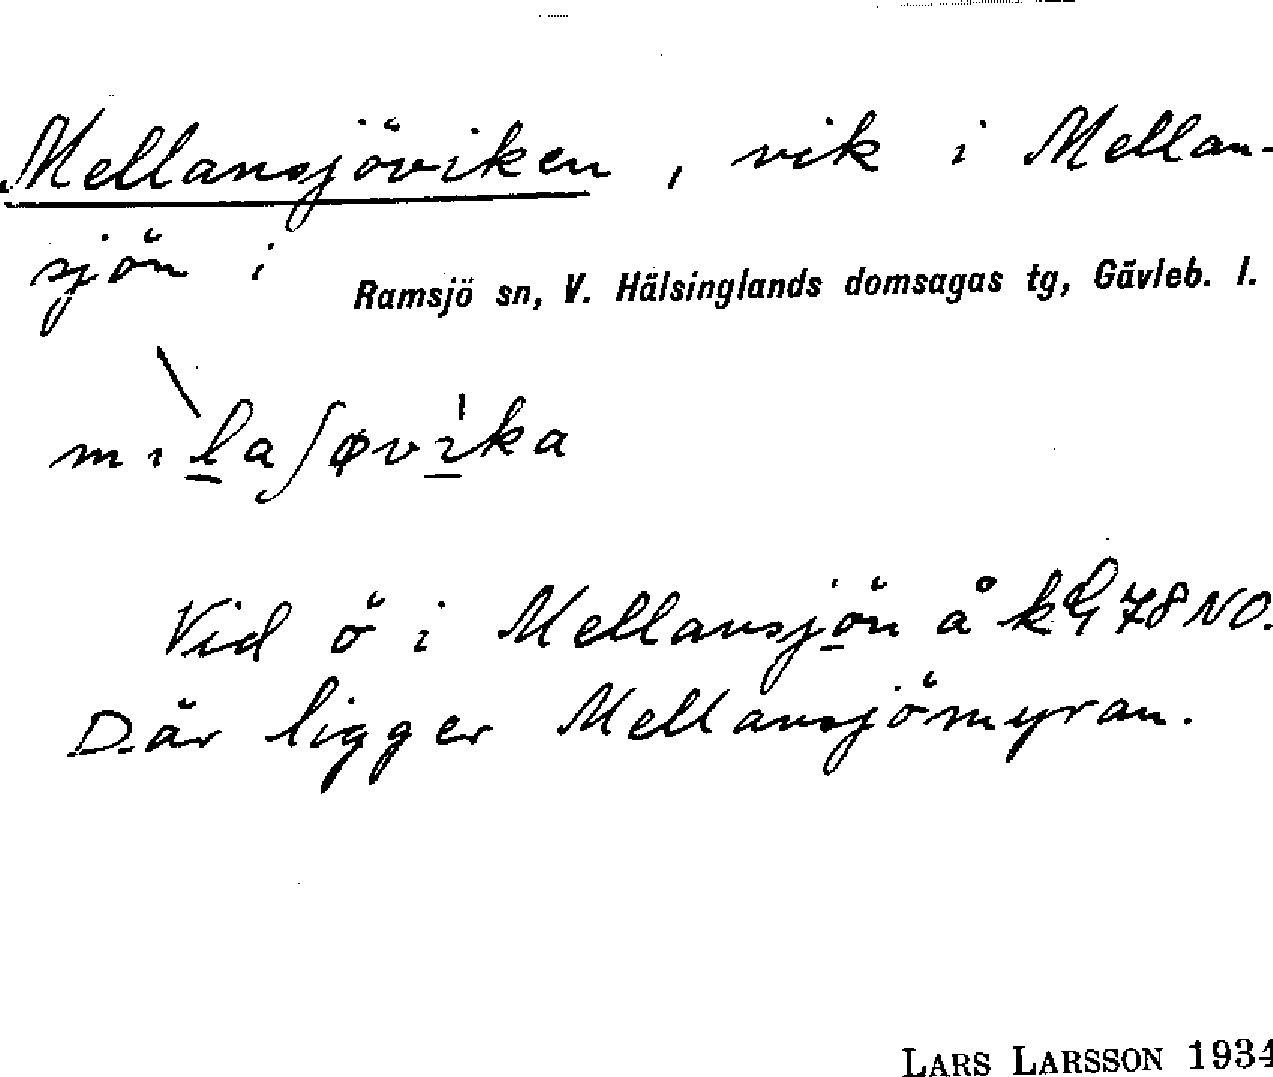 Mellansjöviken, vik i Mellan-
sjön i
Ramsjö sn, V. Hälsinglands domsagas tg, Gävleb. l.
mılaʃøvika
Vid ö i Mellansjön å kG 78 NO.
Där ligger Mellansjömyran.
LARS LARSSON 1934